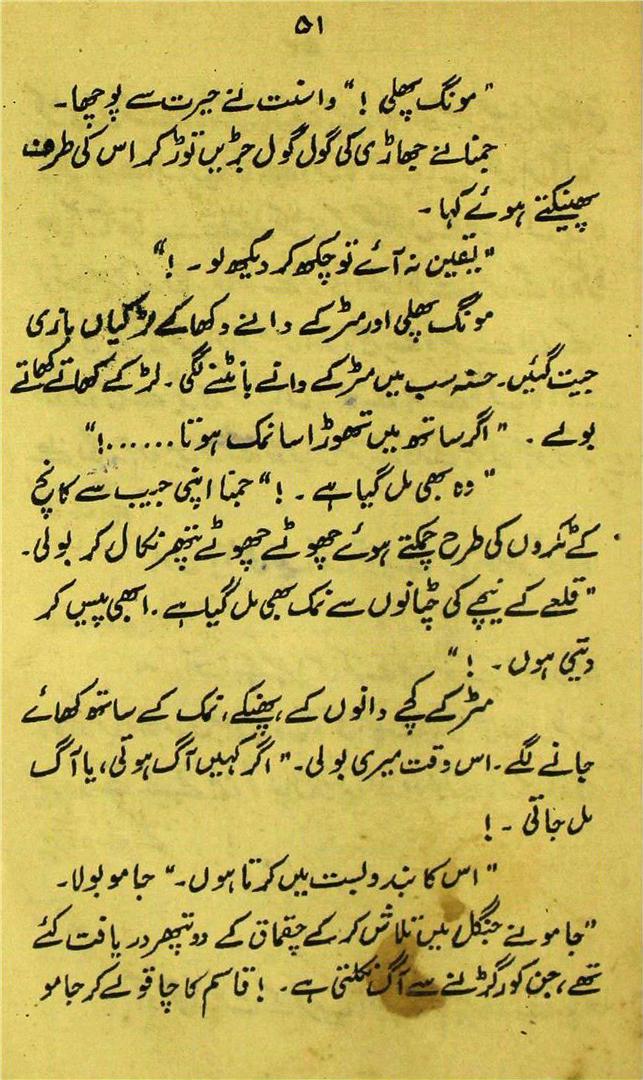 ۵۱
"مونگ پھلی !" واسنت نے حیرت سے پوچھا۔
جمنا نے جھاڑی کی گول گول جڑیں توڑ کر اس کی طرف
پھینکتے ہوئے کہا۔
"یقین نہ آئے تو چکھ کر دیکھ لو۔ !"
مونگ پھلی اور مٹر کے دانے دکھا کے لڑکیاں بازی
جیت گئیں۔ حسنہ سب میں مٹر کے دانے بانٹنے لگی۔ لڑکے کھاتے کھاتے
بولے۔ "اگر ساتھ میں تھوڑا سا نمک ہوتا......!"
"وہ بھی مل گیا ہے۔ !" جمنا اپنی جیب سے کانچ
کے ٹکڑوں کی طرح چمکتے ہوئے چھوٹے چھوٹے پتھر نکال کر بولی۔
"قلعے کے نیچے کی چٹانوں سے نمک بھی مل گیا ہے۔ ابھی پیس کر
دیتی ہوں۔ !"
مٹر کے کچے دانوں کے پھنکے، نمک کے ساتھ کھائے
جانے لگے۔ اس وقت میری بولی۔ "اگر کہیں آگ ہوتی، یا آگ
مل جاتی۔ !
"اس کا بندوبست میں کرتا ہوں۔" جامو بولا۔
"جامو نے جنگل میں تلاش کر کے چقماق کے دو پتھر دریافت کئے
تھے، جن کو رگڑنے سے آگ نکلتی ہے۔ ! قاسم کا چاقو لے کر جامو